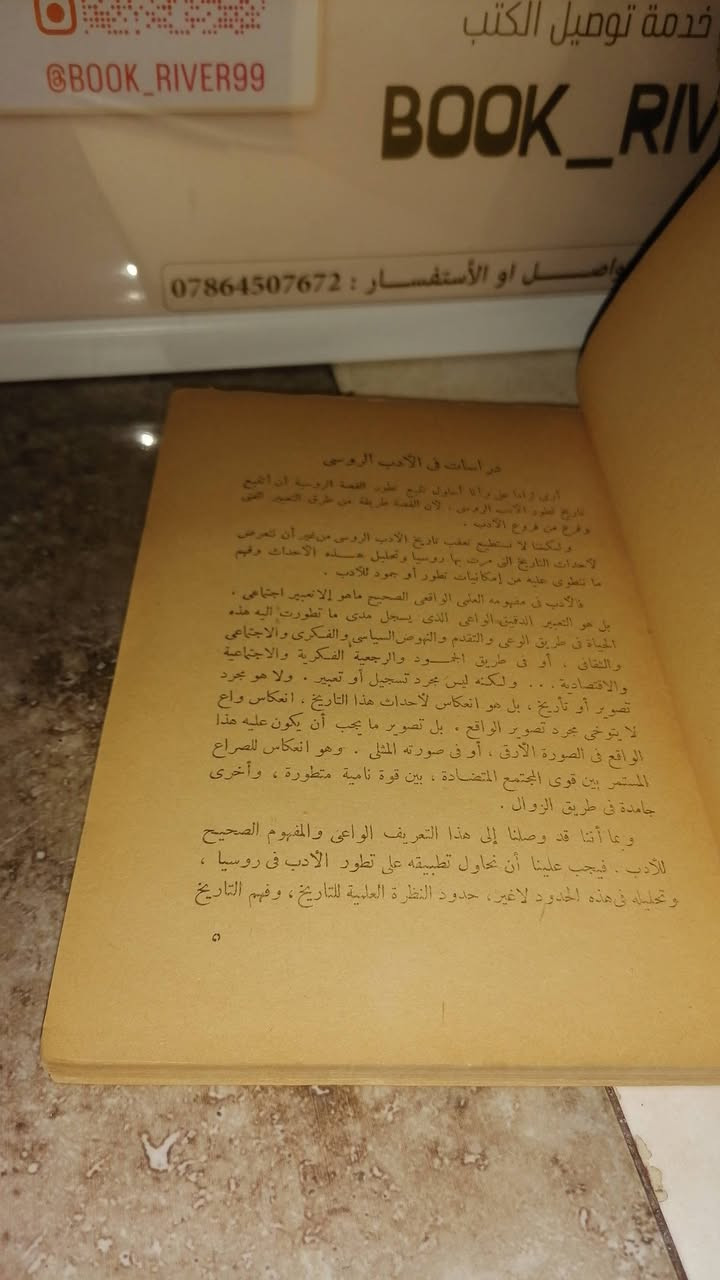 خدمة توصيل الكتب
@BOOK_RIVER99
BOOK_RIV
واصـــل او الأستفســـار : 07864507672
دراسات فى الأدب الروسى
أرى لزاما على وأنا أحاول تتبع تطور القصة الروسية أن أتتبع
تاريخ تطور الأدب الروسى . لأن القصة طريقة من طرق التعبير الفنى
وفرع من فروع الأدب .
ولكننا لا نستطيع تعقب تاريخ الأدب الروسى من غير أن نتعرض
لأحداث التاريخ التى مرت بها روسيا وتحليل هـــذه الأحداث وفهم
ما تنطوى عليه من إمكانيات تطور أو جمود للأدب .
فالأدب فى مفهومه العلمى الواقعى الصحيح ماهو إلا تعبير اجتماعى .
بل هو التعبير الدقيق الواعى الذى يسجل مدى ما تطورت اليه هذه
الحياة فى طريق الوعى والتقدم والنهوض السياسى والفكرى والاجتماعى
والثقافى ، أو فى طريق الجمــود والرجعية الفكرية والاجتماعية
والاقتصادية ... ولكنه ليس مجرد تسجيل أو تعبير . ولا هو مجرد
تصوير أو تأريخ ، بل هو انعكاس لأحداث هذا التاريخ . انعكاس واع
لا يتوخى مجرد تصوير الواقع . بل تصوير ما يجب أن يكون عليه هذا
الواقع فى الصورة الأرقى ، أو فى صورته المثلى . وهو انعكاس للصراع
المستمر بين قوى المجتمع المتضادة ، بين قوة نامية متطورة ، وأخرى
جامدة فى طريق الزوال .
وبما أننا قد وصلنا إلى هذا التعريف الواعى والمفهوم الصحيح
للأدب . فيجب علينا أن نحاول تطبيقه على تطور الأدب فى روسيا ،
وتحليله فى هذه الحدود لاغير ، حدود النظرة العلمية للتاريخ ، وفهم التاريخ
٥